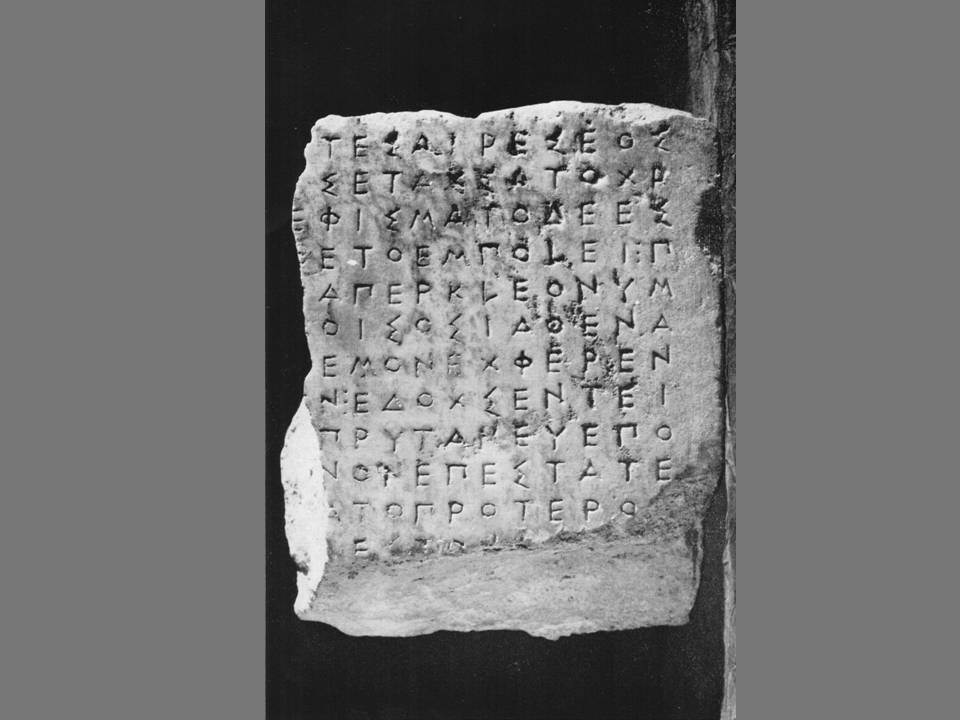 ΤΕΣΑΙΡΕΣΕΟΣ
ΣΕΤΑΣΣΑΤΟΧΡ
ΦΙΣΜΑΤΟΔΕΕΣ
ΕΤΟΕΜΠΟΛΕΙ⋮Π
ΑΠΕΡΚΛΕΟΝΥΜ
ΟΙΣΟΣΙΔΟΕΝΑ
ΕΜΟΝΕΧΦΕΡΕΝ
Ν⋮ΕΔΟΧΣΕΝΤΕΙ
ΠΡΥΤΑΝΕΥΕΠΟ
ΝΟΝΕΠΕΣΤΑΤΕ
ΑΤΟΠΡΟΤΕΡΟ